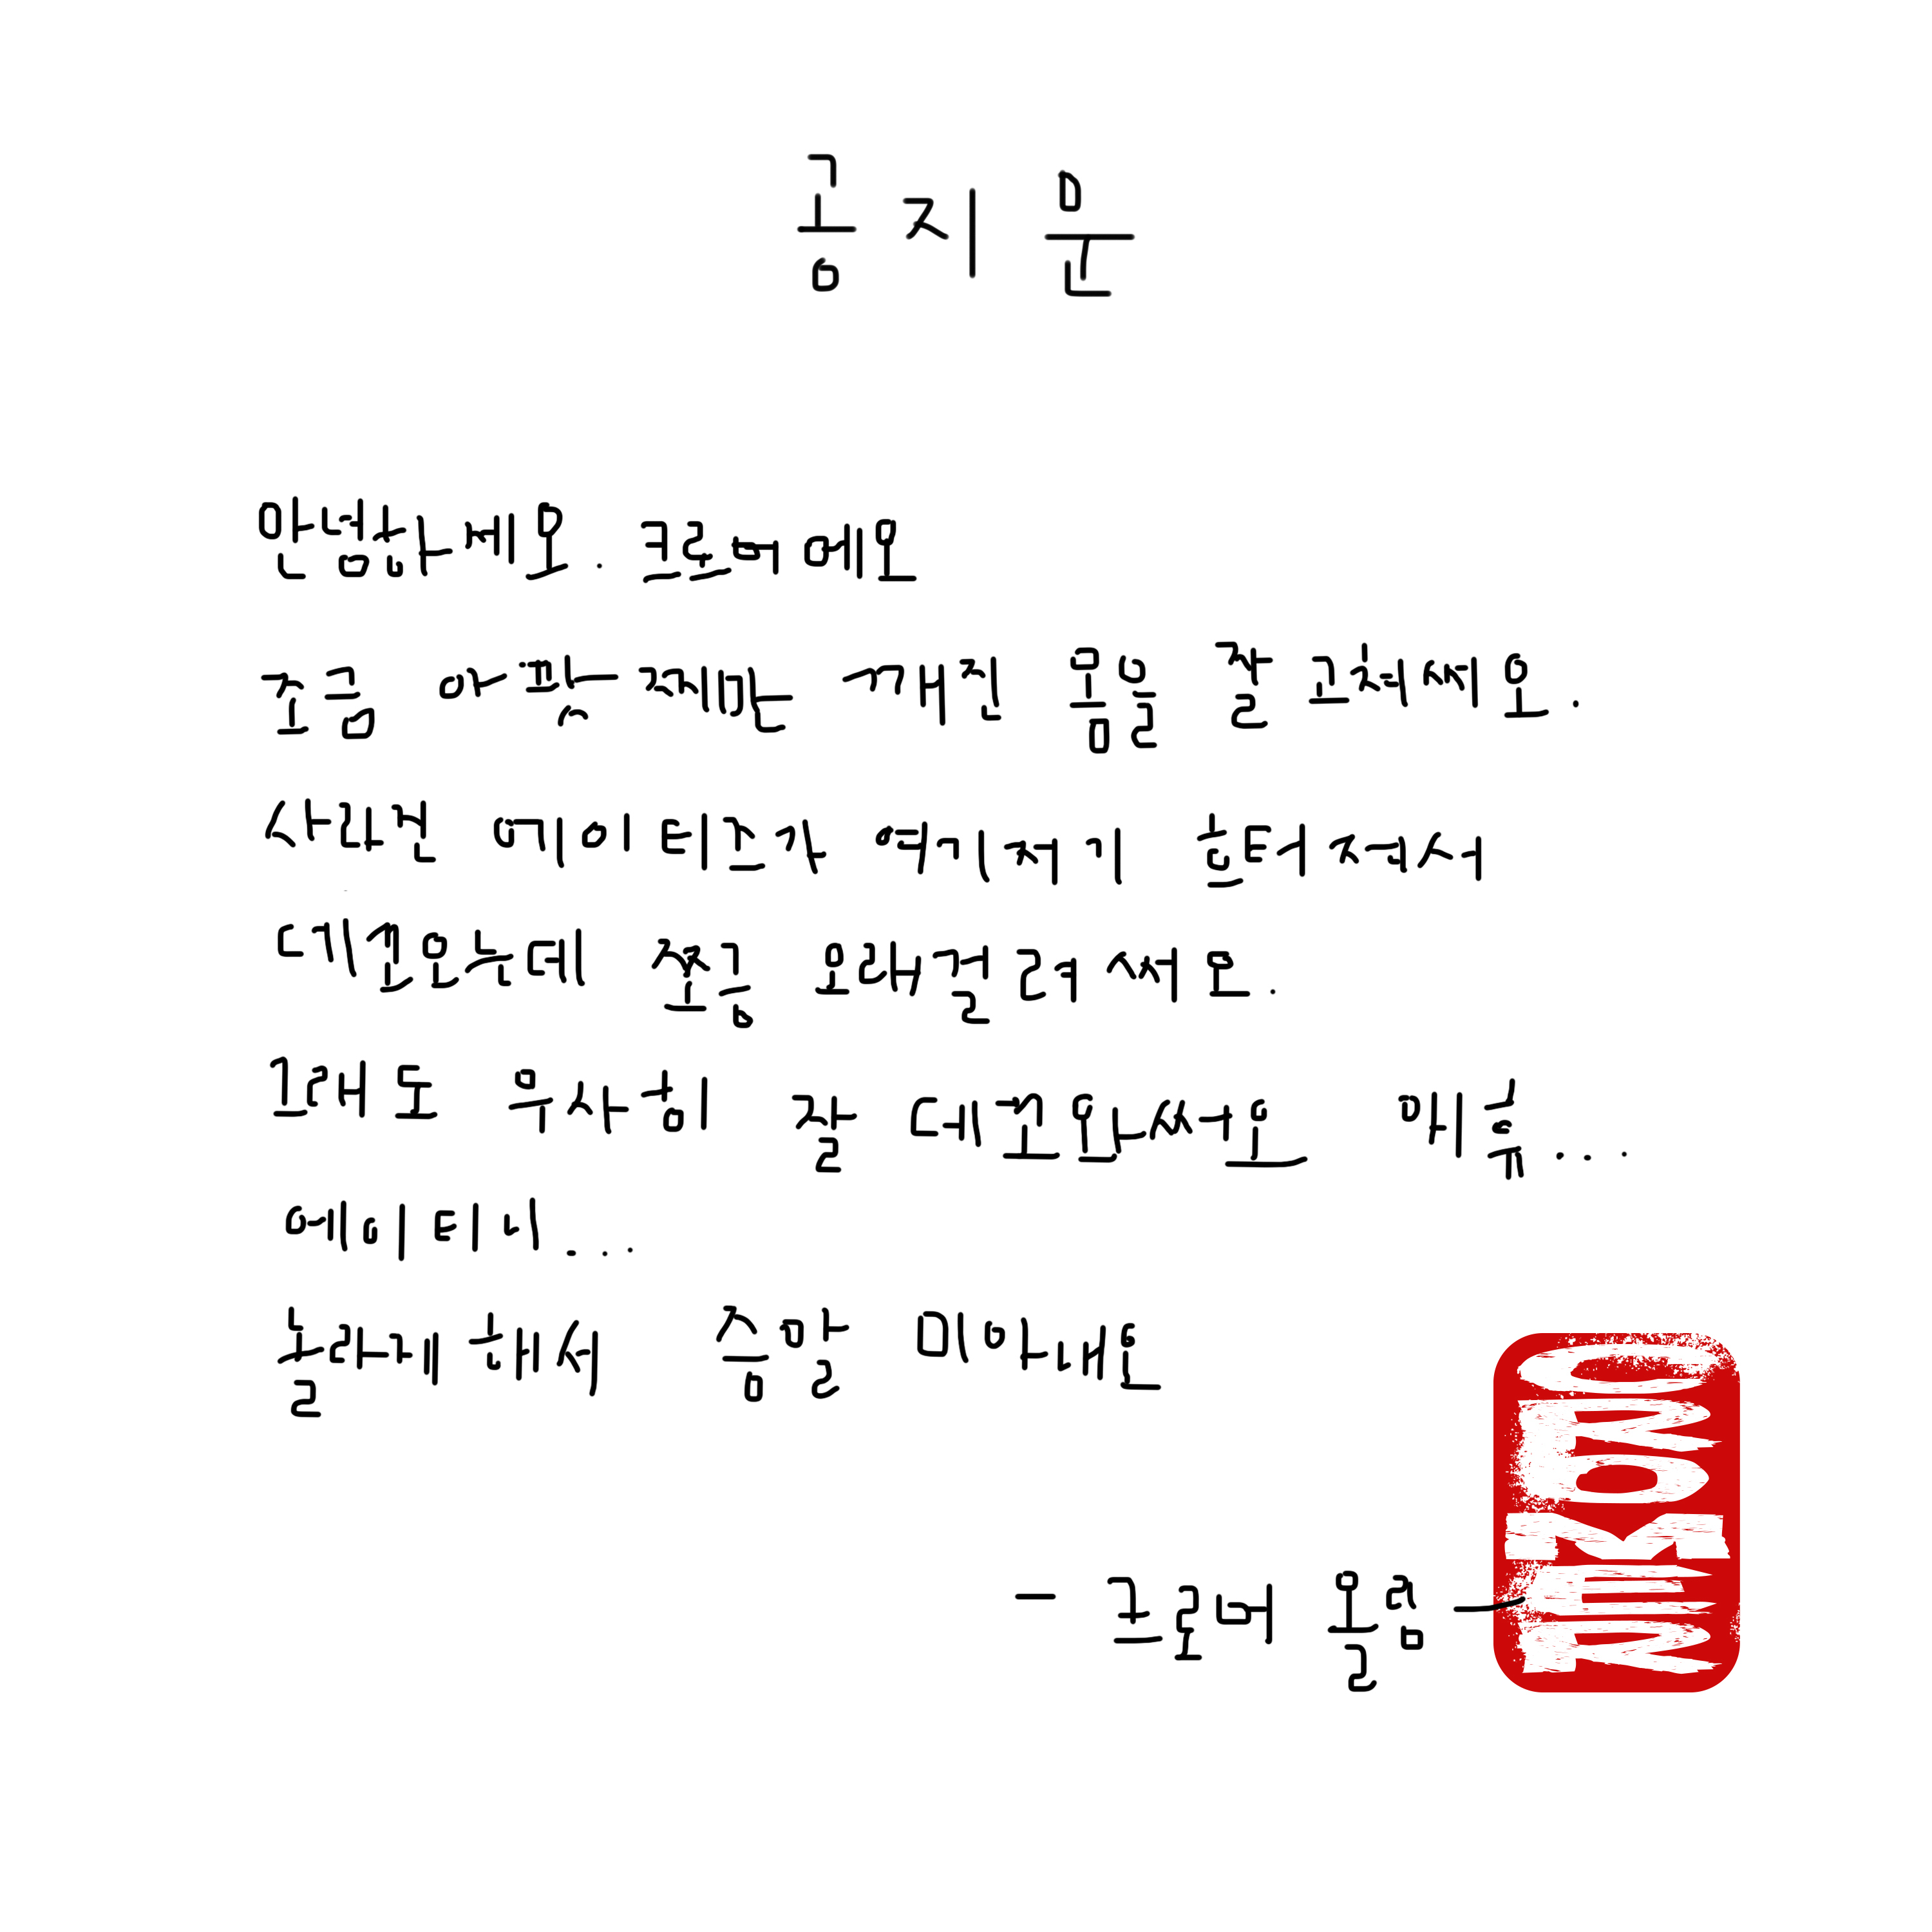 공지문
안념하세요. 크로머에요
조금 아팠찌만 깨진 몸을 잘 고쳐써요.
사라진 에이티즈가 여기저기 흐터져서
데꼬오는데 쪼금 오래걸려써요.
그래도 무사히 잘 데꼬와써요 애휴...
에이티니...
놀라게 해서 증말 미아내요
- 크로머 올림 -